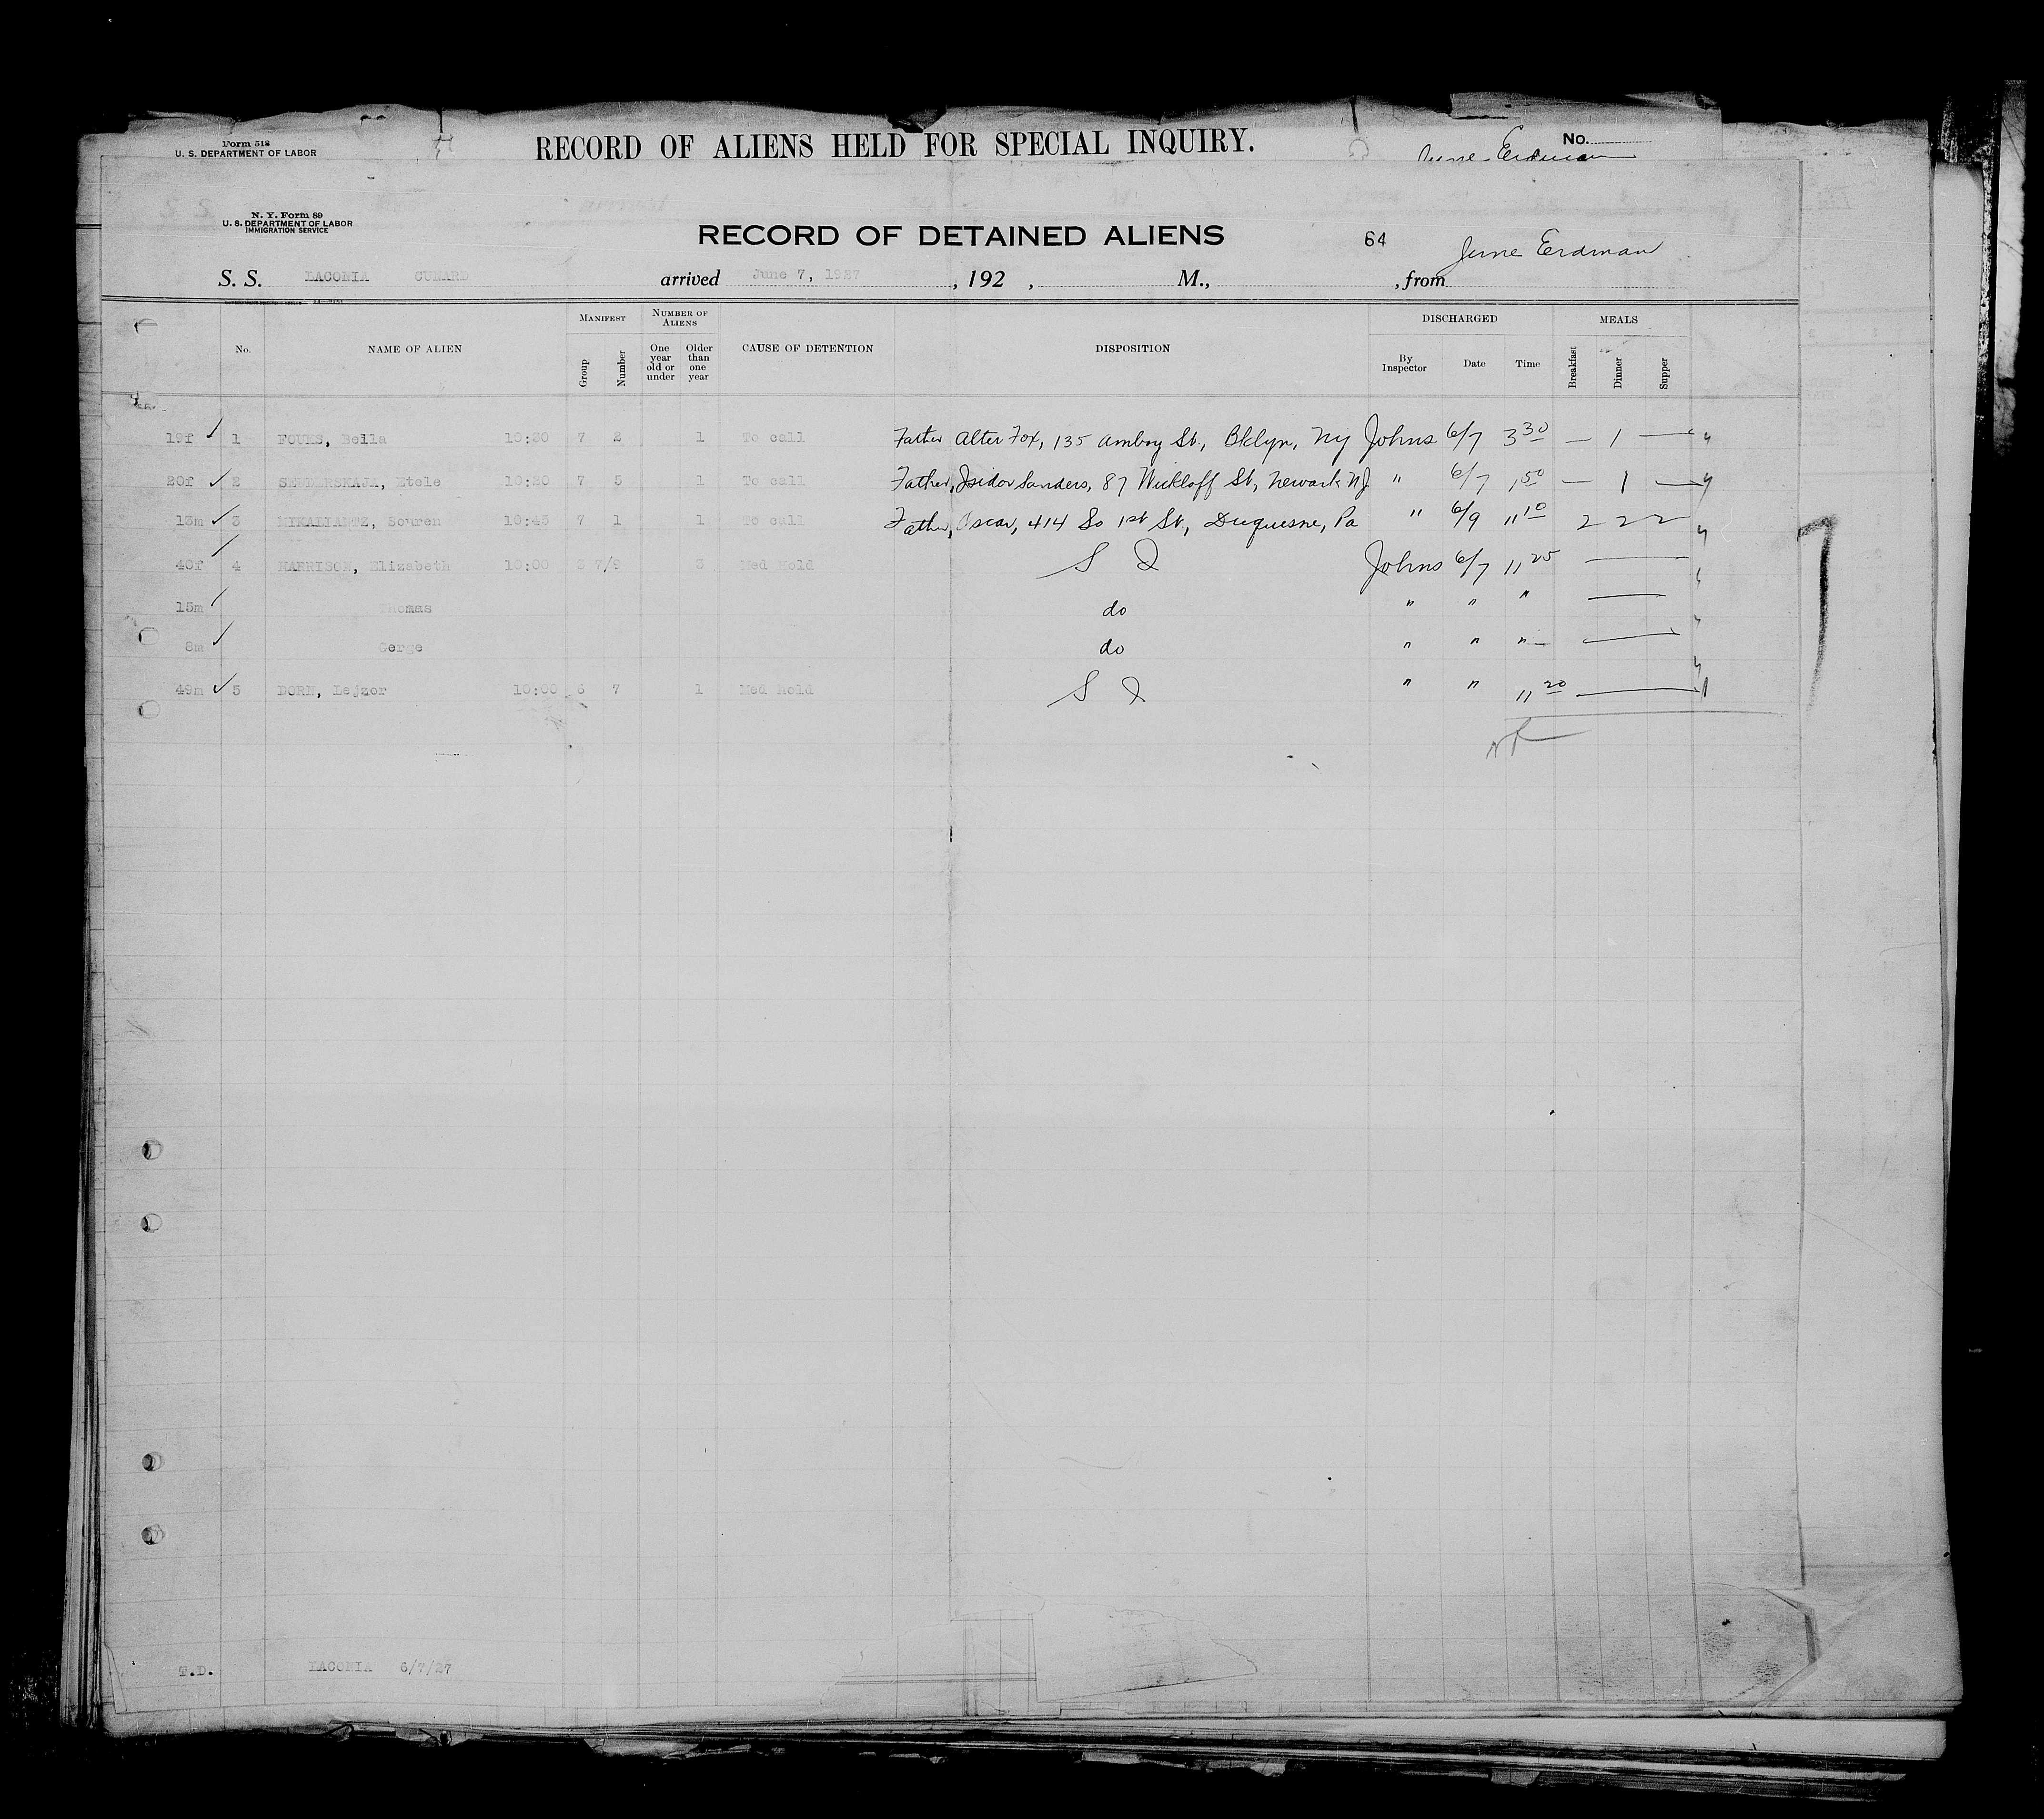 Form 518
U. S. DEPARTMENT OF LABOR
RECORD OF ALIENS HELD FOR SPECIAL INQUIRY.
No.
June Erdman
N. Y. Form 89
U. S. DEPARTMENT OF LABOR
IMMIGRATION SERVICE
RECORD OF DETAINED ALIENS
64
June Erdman
S. S. LACONIA CUNARD arrived June 7, 1927, 192 , M., , from
No. NAME OF ALIEN MANIFEST Group Number NUMBER OF ALIENS One year old or under Older than one year CAUSE OF DETENTION DISPOSITION DISCHARGED By Inspector Date Time MEALS Breakfast Dinner Supper
19f ✓ 1 FOUKS, Beila 10:30 7 2 1 To call Father Alter Fox, 135 Amboy St, Bklyn, NY Johns 6/7 3 30 — 1 —
20f ✓ 2 Etele 10:20 7 5 1 To call Father, Isidor Sanders, 87 Wickloff St, Newark NJ " 6/7 1 50 — 1 —
13m ✓ 3 Souren 10:45 7 1 1 To call Father, Oscar, 414 So 1st St, Duquesne, Pa " 6/9 11 10 2 2 2
40f ✓ 4 Elizabeth 10:00 3 7/9 3 Med Hold S I Johns 6/7 11 25 —
15m ✓ Thomas do " " " —
8m ✓ Gerge do " " " —
49m ✓ 5 DORN, Lejzor 10:00 6 7 1 Med Hold S I " " 11 20 —
T.D. LACONIA 6/7/27